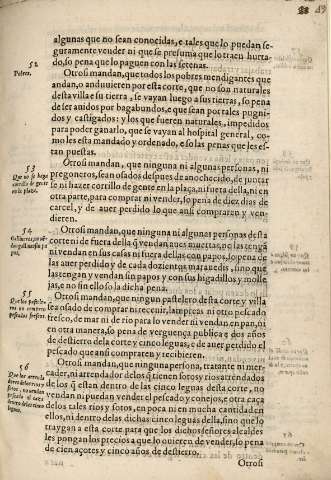 49
algunas que no sean conocidas, e tales que lo puedan se-
guramente vender ni que se presuma que lo traen hurta-
do, so pena que lo paguen con las setenas.
52
Pobres.
Otrosi mandan, que todos los pobres mendigantes que
andan, o anduuieren por esta corte, que no son naturales
desta villa e su tierra, se vayan luego a sus tierras, so pena
de ser auidos por bagabundos, e que sean por tales pugni-
dos y castigados: y los que fueren naturales, impedidos
para poder ganarlo, que se vayan al hospital general, co-
mo les esta mandado y ordenado, e so las penas que les es-
tan puestas.
53
Que no se haga
corrillo de gente
en la plaça.
Otrosi mandan, que ninguni algunas personas, ni
pregoneros, sean osados despues de anochecido, de juntar
se ni hazer corrillo de gente en la plaça, ni fuera della, ni en
otra parte, para comprar ni vender, so pena de diez dias de
carcel, y de auer perdido lo que ansi compraren y ven-
dieren.
54
Otrosi mandan, que ninguna ni algunas personas desta
corte ni de fuera della q̃ vendan aues muertas, no las tengã
ni vendan en sus casas ni fuera dellas con papos, so pena de
las auer perdido y de cada dozientos marauedis, sino que
las tengan y vendan sin papos y con sus higadillos y molle
jas, e no sin ello so la dicha pena.
55
Que los pasteleros
no
Otrosi mandan, que ningun pastelero desta corte y villa
sea osado de comprar ni recenir, lampreas ni otro pescado
fresco, de mar ni de rio para lo vender ni vendan en pan, ni
en otra manera, so pena de verguença publica y dos años
de destierro dela corte y cinco leguas: e de auer perdido el
pescado que ansi compraren y recibieren.
56
Otrosi mandan, que ninguna persona, tratante ni mer-
cader, ni arrendador delos q̃ tienen sotos y rios arrendados
de los q̃ estan dentro de las cinco leguas desta corte, no
vendan ni puedan vender el pescado y conejos, e otra caça
delos tales rios y sotos, en poca ni en mucha cantidad en
ellos, ni dentro delas dichas cinco leguas della, sino que lo
traygan a esta corte para que los dichos señores alcaldes
les pongan los precios a que lo ouieren de vender, so pena
de cien açotes y cinco años de destierro.
Otrosi